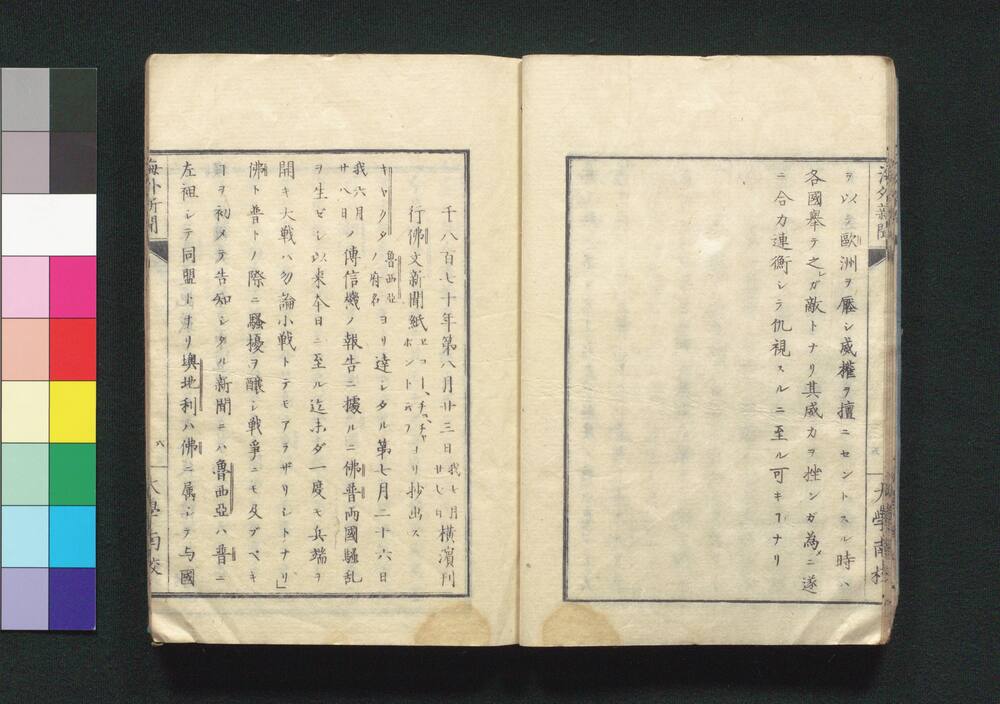 ヲ以テ歐洲ヲ壓シ威權ヲ擅ニセントスル時ハ
各國舉テ之レガ敵トナリ其威力ヲ挫ンガ為メニ遂
ニ合力連衡シテ仇視スルニ至ル可キヿナリ
海外新聞
大學南校
千八百七十年第八月廿三日我七月廿七日橫濱刊
行佛文新聞紙ヨリ抄出ス
キヤクタ魯西亞ノ府名ヨリ達シタル第七月二十六日
我六月廿八日ノ傳信機ノ報告ニ據ルニ佛普両國騷乱
ヲ生ゼシ以来今日ニ至ル迄未ダ一度モ兵端ヲ
開キ大戦ハ勿論小戦トテモアラザリシトナリ」
佛ト普トノ際ニ騷擾ヲ醸シ戦爭ニモ及ブベキ
ヿヲ初メテ告知シタル新聞ニハ魯西亞ハ普ニ
左袒シテ同盟トナリ墺地利ハ佛ニ属シテ与國
海外新聞
八
大學南校